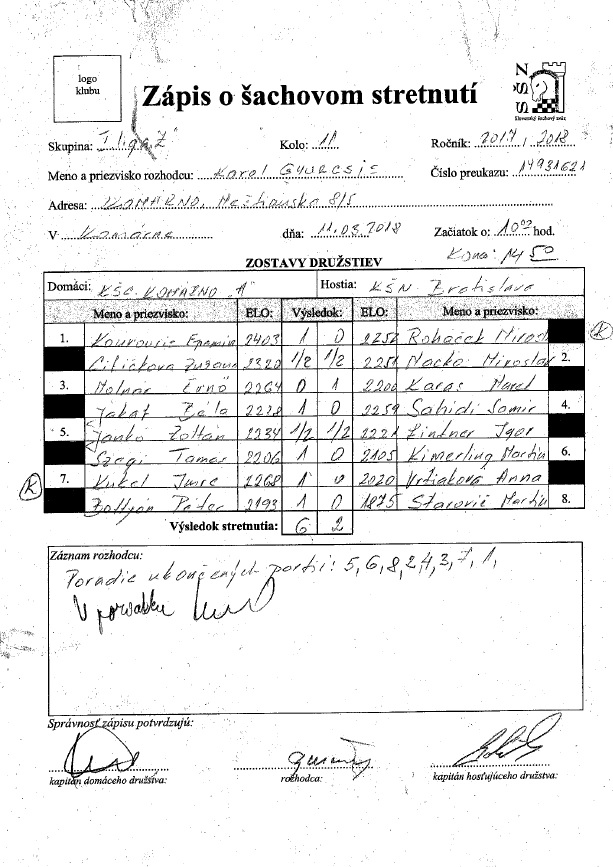 logo
klubu
Zápis o šachovom stretnutí
SŠZ
Slovenský šachový zväz
Skupina: I liga Z Kolo: 11 Ročník: 2017, 2018
Meno a priezvisko rozhodcu: Karol Gyurcsic Číslo preukazu: 14931621
Adresa: KOMÁRNO, 8/5
V Komárne dňa: 11.03.2018 Začiatok o: 10 00 hod.
Konec 14 50
ZOSTAVY DRUŽSTIEV
Domáci: KŠC KOMÁRNO "A" Hostia: KŠN Bratislava
Meno a priezvisko: ELO: Výsledok: ELO: Meno a priezvisko:
1. 2403 1 0 2252 Roháček K
Ciličková 2320 1/2 1/2 2251 Macko Miroslav 2.
3. Molnár Ernő 2264 0 1 2200 Karas
Jakat Béla 2228 1 0 2259 Sahidi Samir 4.
5. Janko Zoltán 2234 1/2 1/2 2221 Lintner Igor
Szegi Tamás 2206 1 0 2105 Kimerling Martin 6.
K 7. Kukel Imre 2268 1 0 2020 Vrtiaková Anna
Péter 2193 1 0 1875 Starovič Martin 8.
Výsledok stretnutia: 6 2
Záznam rozhodcu:
Poradie ukončených partií: 5, 6, 8, 2, 4, 3, 7, 1,
V poriadku
Správnosť zápisu potvrdzujú:
kapitán domáceho družstva: rozhodca: kapitán hosťujúceho družstva: